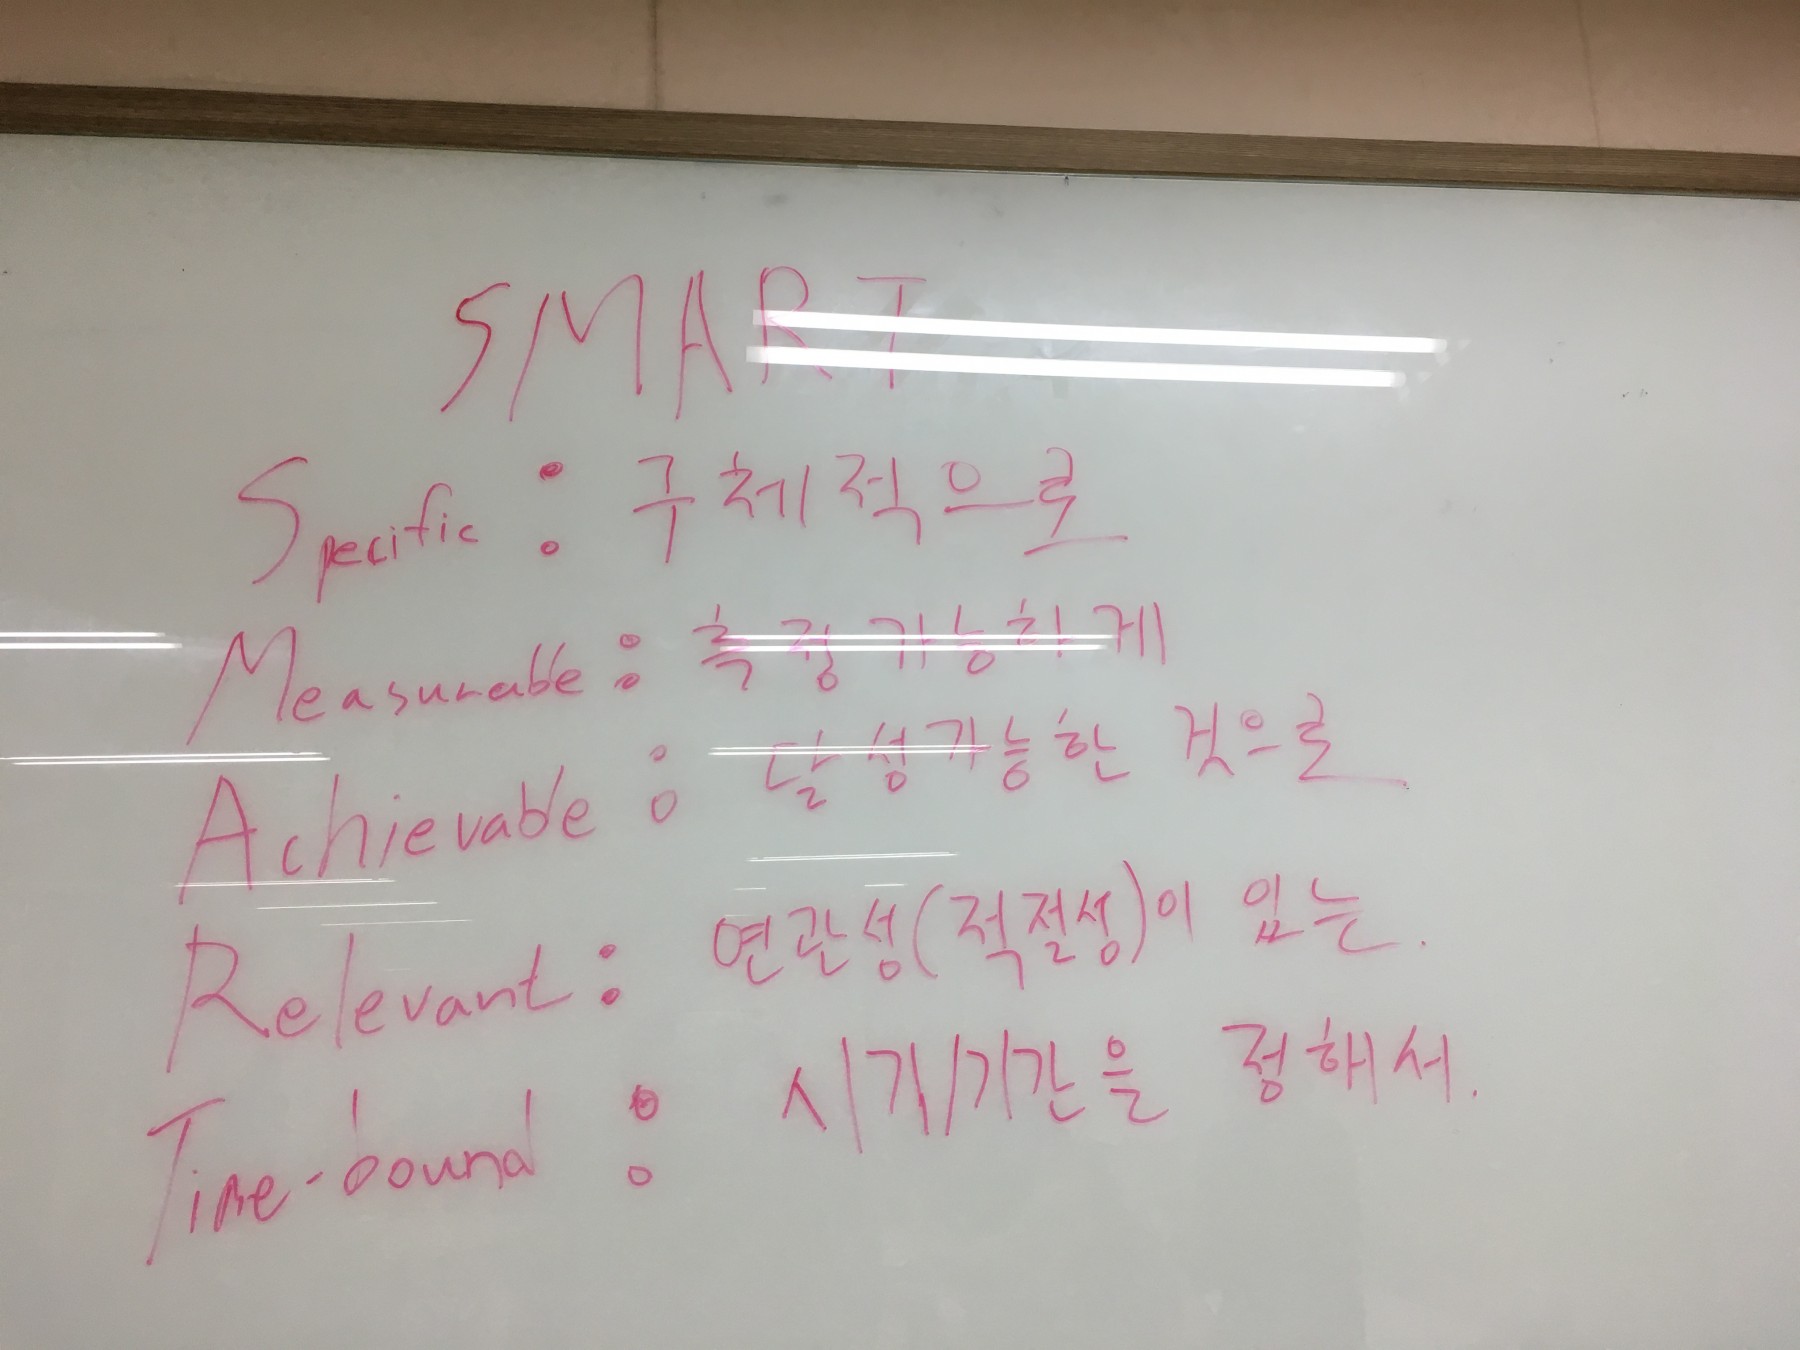 SMART
Specific : 구체적으로
Measurable : 측정가능하게
Achievable : 달성가능한 것으로
Relevant : 연관성(적절성)이 있는.
Time-bound : 시기/기간을 정해서.